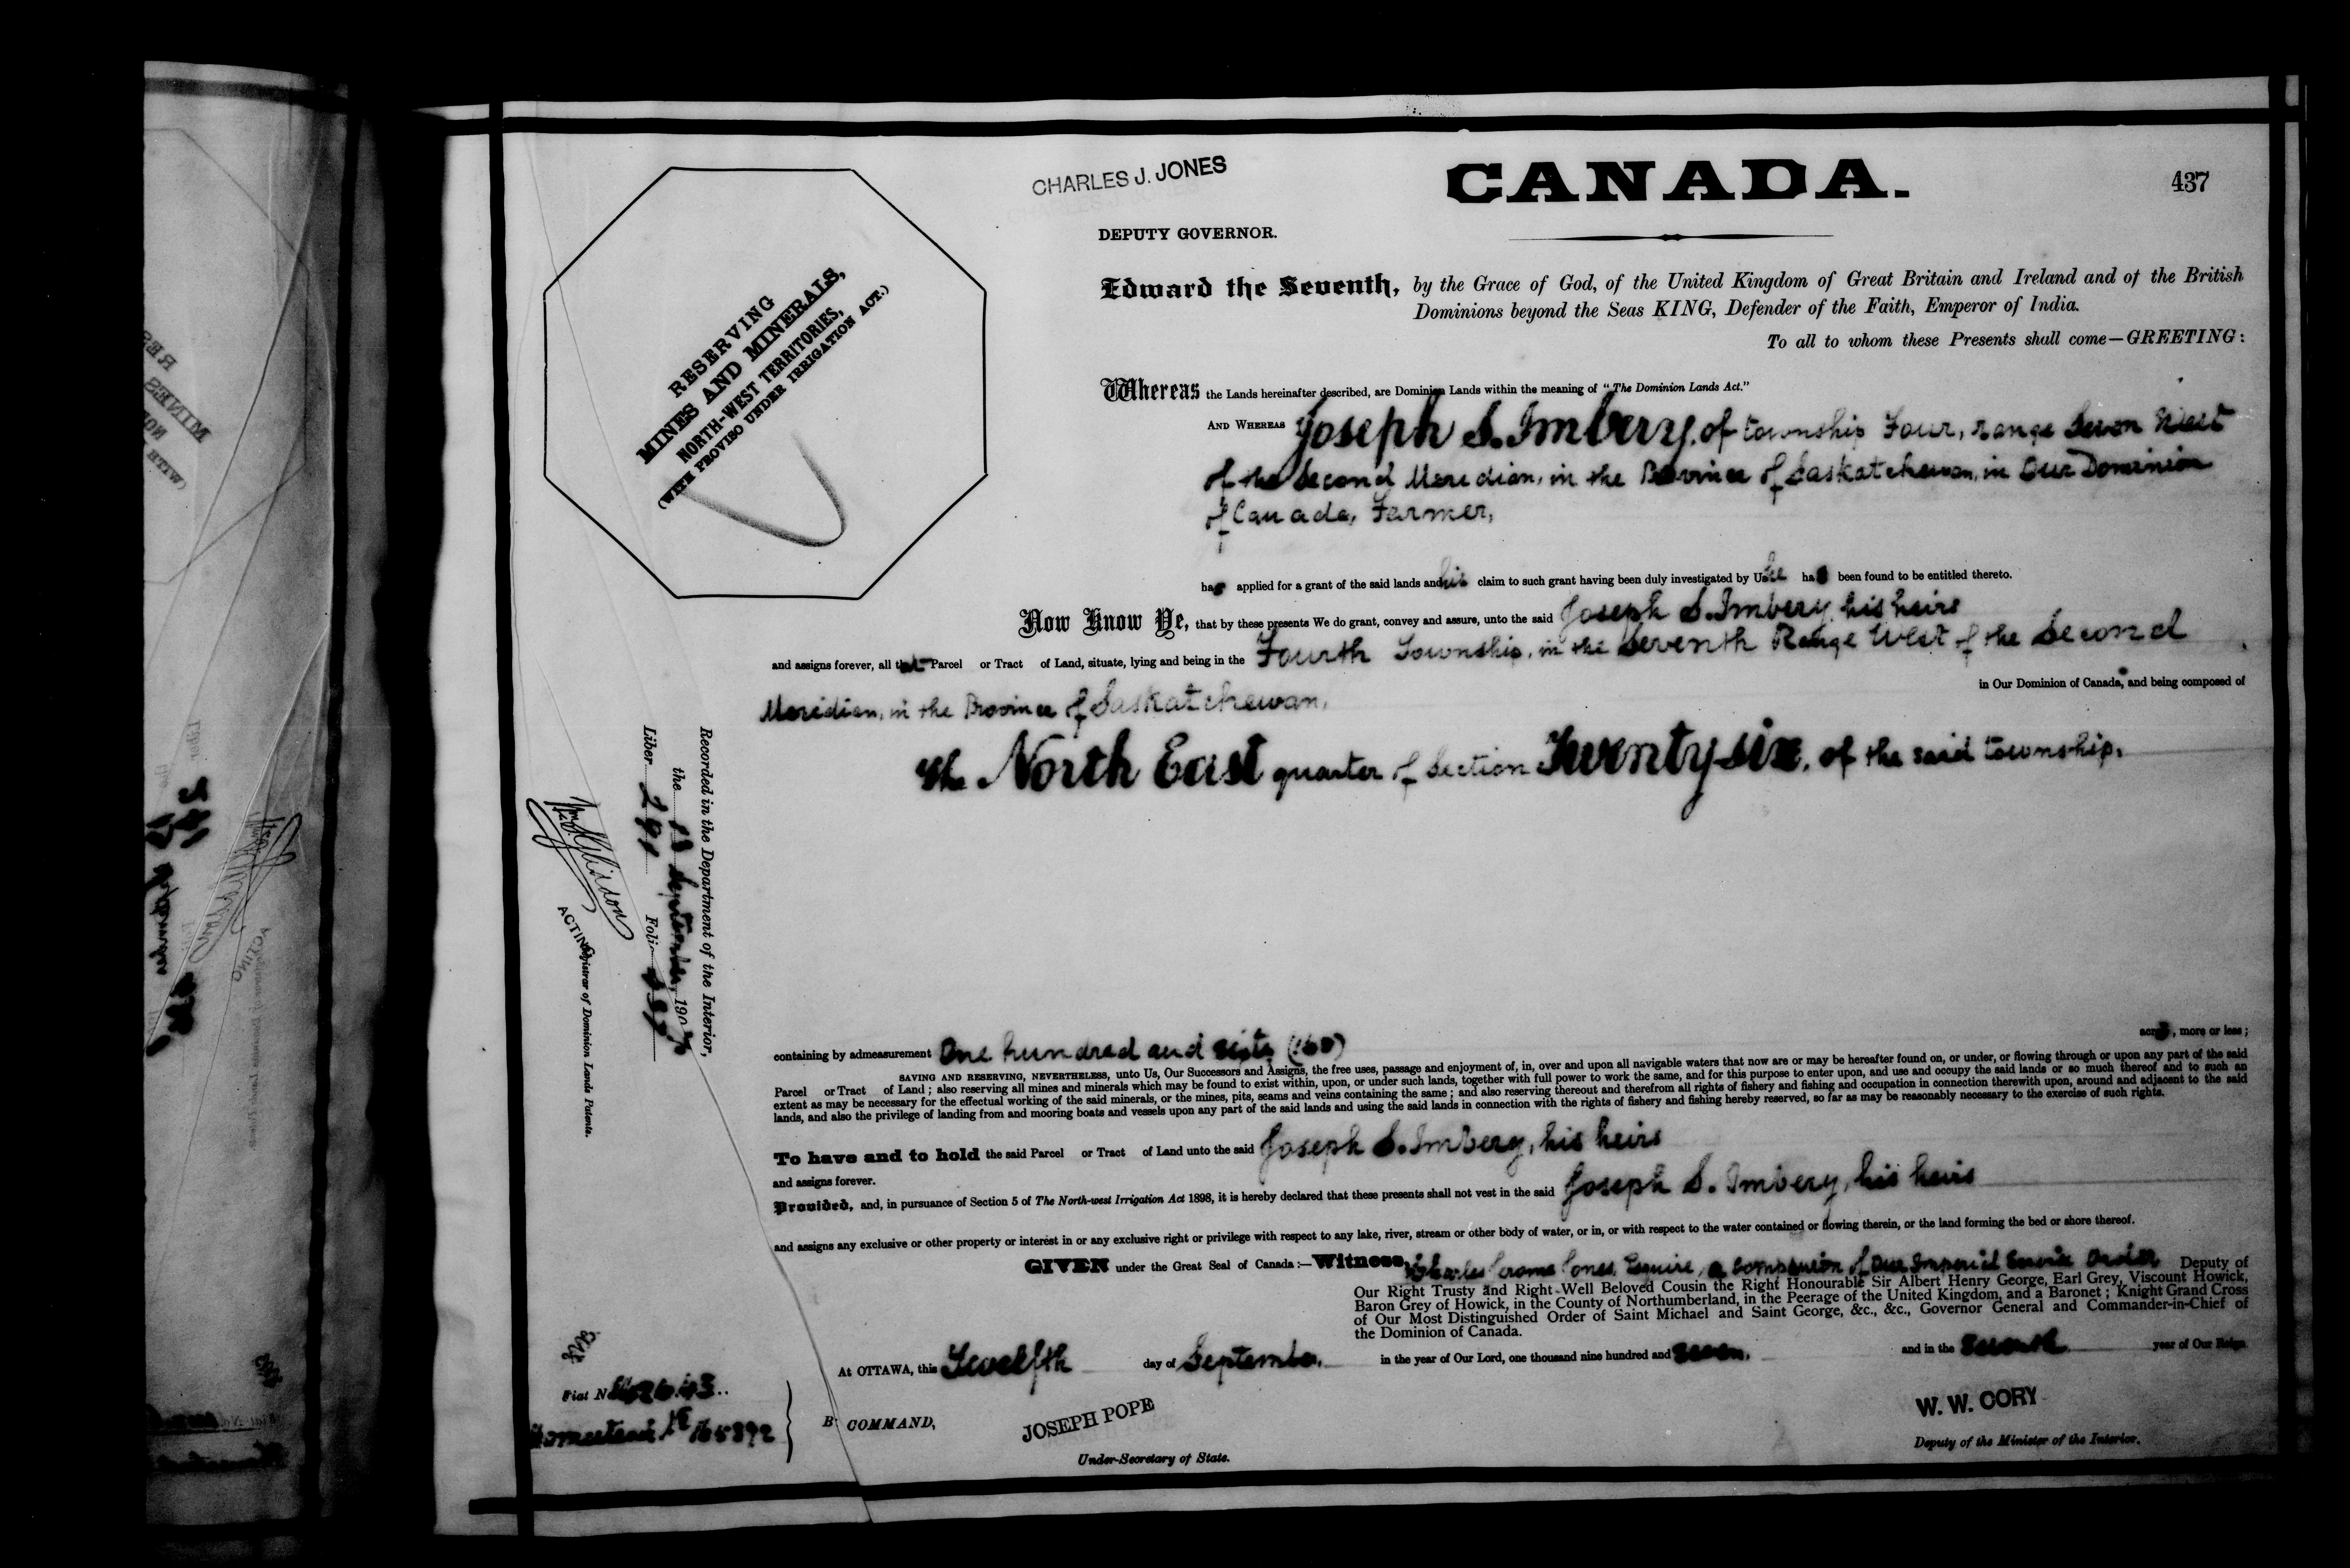 CHARLES J. JONES
CANADA.
437
DEPUTY GOVERNOR.
RESERVING
MINES AND MINERALS,
NORTH-WEST TERRITORIES,
(WITH PROVISO UNDER IRRIGATION ACT.)
Edward the Seventh, by the Grace of God, of the United Kingdom of Great Britain and Ireland and of the British
Dominions beyond the Seas KING, Defender of the Faith, Emperor of India.
To all to whom these Presents shall come—GREETING:
Whereas the Lands hereinafter described, are Dominion Lands within the meaning of "The Dominion Lands Act."
AND WHEREAS Joseph S. Imbery, of township Four, range Seven West
of the Second Meridian, in the Province of Saskatchewan, in Our Dominion
of Canada, Farmer,
has applied for a grant of the said lands and his claim to such grant having been duly investigated by Us he has been found to be entitled thereto.
Now Know Ye, that by these presents We do grant, convey and assure, unto the said Joseph S. Imbery, his heirs
and assigns forever, all that Parcel or Tract of Land, situate, lying and being in the Fourth Township, in the Seventh Range West of the Second
Meridian, in the Province of Saskatchewan, in Our Dominion of Canada, and being composed of
The North East quarter of Section Twenty six, of the said township,
Recorded in the Department of the Interior,
the September, 1907
Liber 291 Folio 437
ACTING Registrar of Dominion Lands Patents.
containing by admeasurement One hundred and sixty (160) acres, more or less;
SAVING AND RESERVING, NEVERTHELESS, unto Us, Our Successors and Assigns, the free uses, passage and enjoyment of, in, over and upon all navigable waters that now are or may be hereafter found on, or under, or flowing through or upon any part of the said
Parcel or Tract of Land; also reserving all mines and minerals which may be found to exist within, upon, or under such lands, together with full power to work the same, and for this purpose to enter upon, and use and occupy the said lands or so much thereof and to such an
extent as may be necessary for the effectual working of the said minerals, or the mines, pits, seams and veins containing the same; and also reserving thereout and therefrom all rights of fishery and fishing and occupation in connection therewith upon, around and adjacent to the said
lands, and also the privilege of landing from and mooring boats and vessels upon any part of the said lands and using the said lands in connection with the rights of fishery and fishing hereby reserved, so far as may be reasonably necessary to the exercise of such rights.
To have and to hold the said Parcel or Tract of Land unto the said Joseph S. Imbery, his heirs
and assigns forever.
Provided, and, in pursuance of Section 5 of The North-west Irrigation Act 1898, it is hereby declared that these presents shall not vest in the said Joseph S. Imbery, his heirs
and assigns any exclusive or other property or interest in or any exclusive right or privilege with respect to any lake, river, stream or other body of water, or in, or with respect to the water contained or flowing therein, or the land forming the bed or shore thereof.
GIVEN under the Great Seal of Canada:—Witness, Charles Jones, Esquire, a Companion of Our Imperial Service Order Deputy of
Our Right Trusty and Right Well Beloved Cousin the Right Honourable Sir Albert Henry George, Earl Grey, Viscount Howick,
Baron Grey of Howick, in the County of Northumberland, in the Peerage of the United Kingdom, and a Baronet; Knight Grand Cross
of Our Most Distinguished Order of Saint Michael and Saint George, &c., &c., Governor General and Commander-in-Chief of
the Dominion of Canada.
At OTTAWA, this Twelfth day of September, in the year of Our Lord, one thousand nine hundred and seven, and in the seventh year of Our Reign
Fiat No
Homestead No 165892
BY COMMAND,
JOSEPH POPE
Under-Secretary of State.
W. W. CORY
Deputy of the Minister of the Interior.